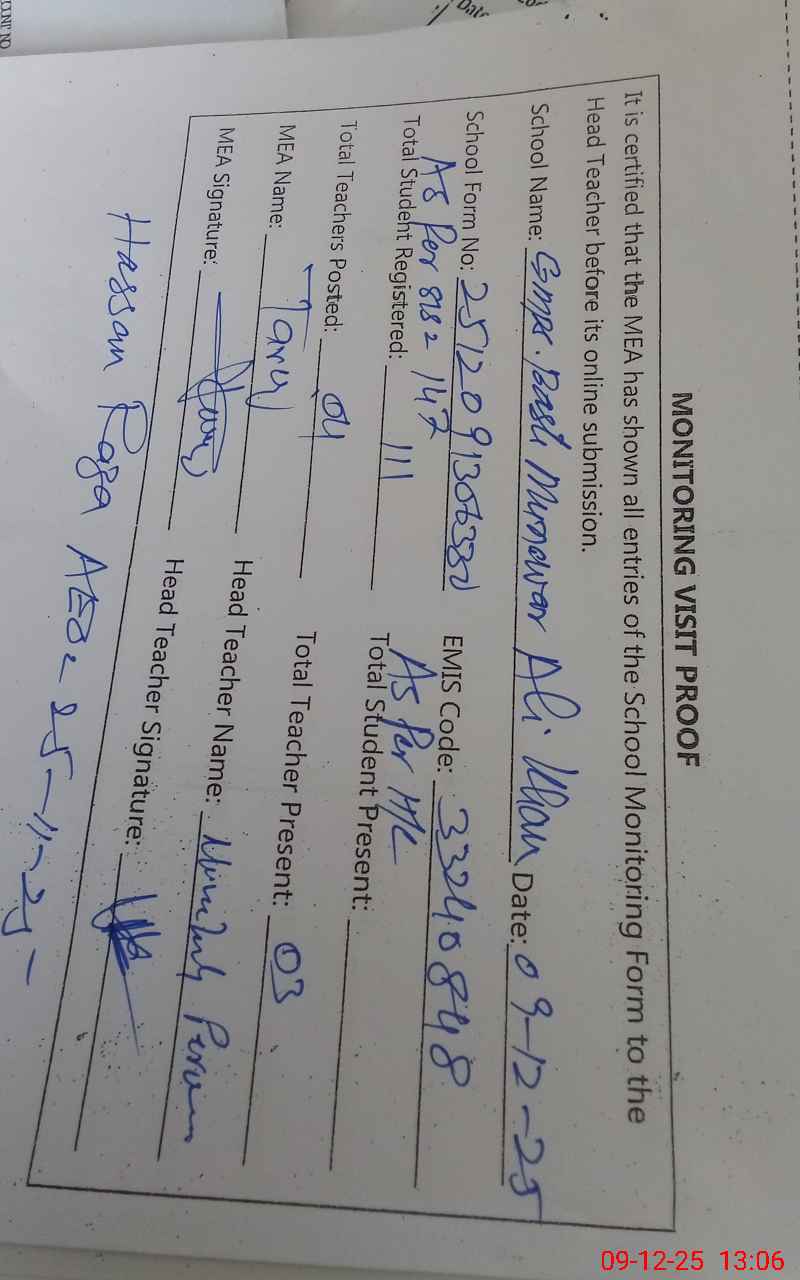 MONITORING VISIT PROOF
It is certified that the MEA has shown all entries of the School Monitoring Form to the
Head Teacher before its online submission.
School Name: Gmps. Basti Ali Khan Date: 09-12-25
School Form No: EMIS Code: 33240848
As Per SIS = 147 As Per H/C
Total Student Registered: 111 Total Student Present:
Total Teachers Posted: 04 Total Teacher Present: 03
MEA Name: Tariq Head Teacher Name:
MEA Signature: Head Teacher Signature:
Hassan Raza AEO = 25-11-25-
09-12-25 13:06